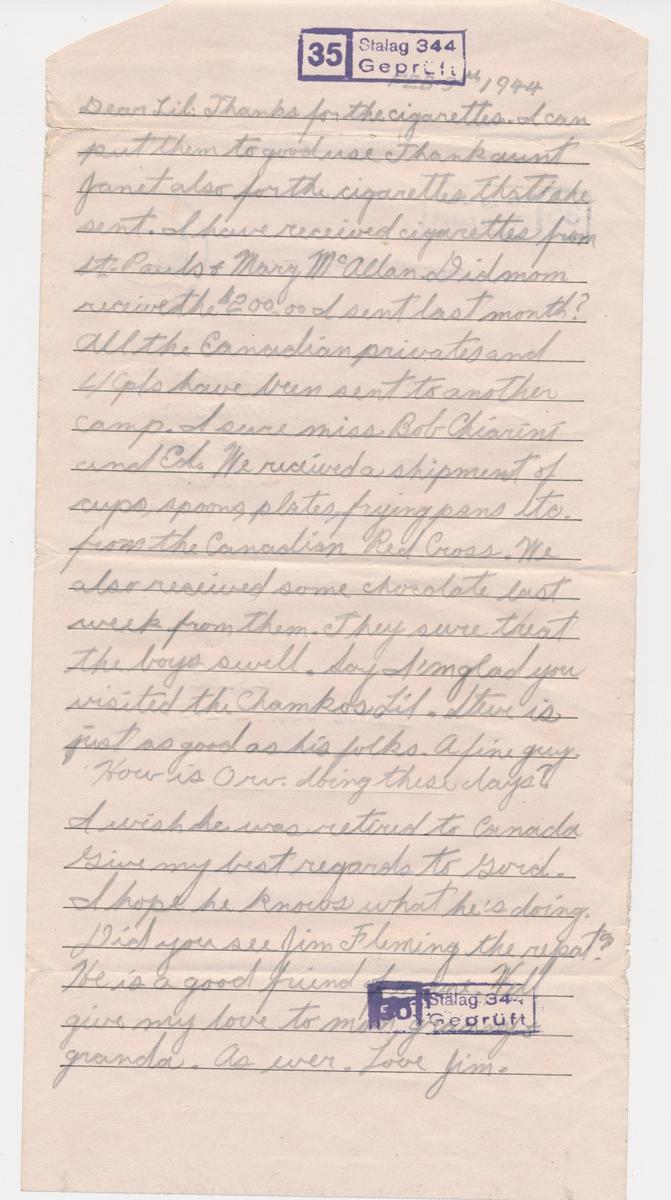 35 Stalag 344
Geprüft
Feb 5th, 1944
Dear Lil: Thanks for the cigarettes. I can
put them to good use Thank aunt
Janet also for the cigarettes that she
sent. I have received cigarettes from
St. Pauls & Mary McAllan. Did mom
receive the $200.00 I sent last month?
All the Canadian privates and
L/Cpls have been sent to another
camp. I sure miss Bob Chiarini
and Ed. We received a shipment of
cups, spoons, plates, frying pans etc.
from the Canadian Red Cross. We
also received some chocolate last
week from them. They sure treat
the boys swell. Say I'm glad you
visited the Chamkos Lil. Steve is
just as good as his folks. A fine guy.
How is Orv. doing these days?
I wish he was retired to Canada
Give my best regards to Gord.
I hope he knows what he's doing.
Did you see Jim Fleming the repat?
He is a good friend of mine. Well
give my love to mom
granda. As ever. Love Jim.
Stalag 344
Geprüft